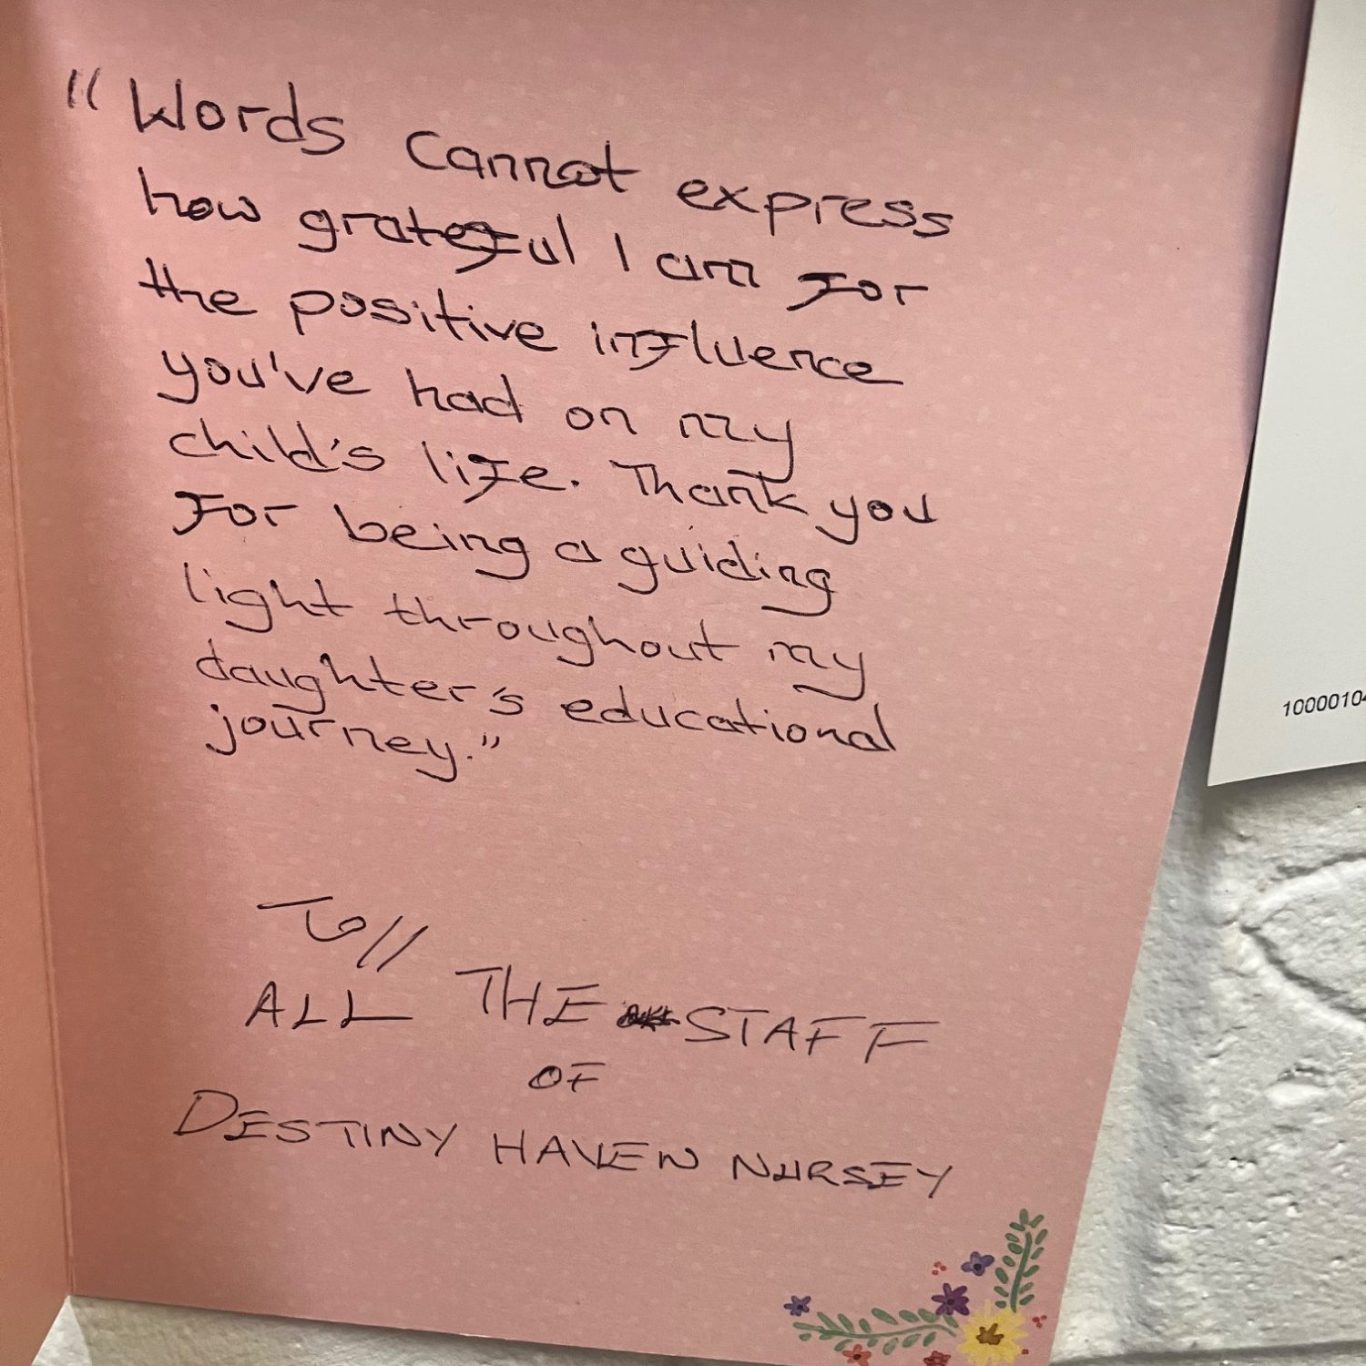 "Words cannot express
how grateful I am for
the positive influence
you've had on my
child's life. Thank you
For being a guiding
light throughout my
daughter's educational
journey."
To//
ALL THE STAFF
OF
DESTINY HAVEN NURSEY
1000010